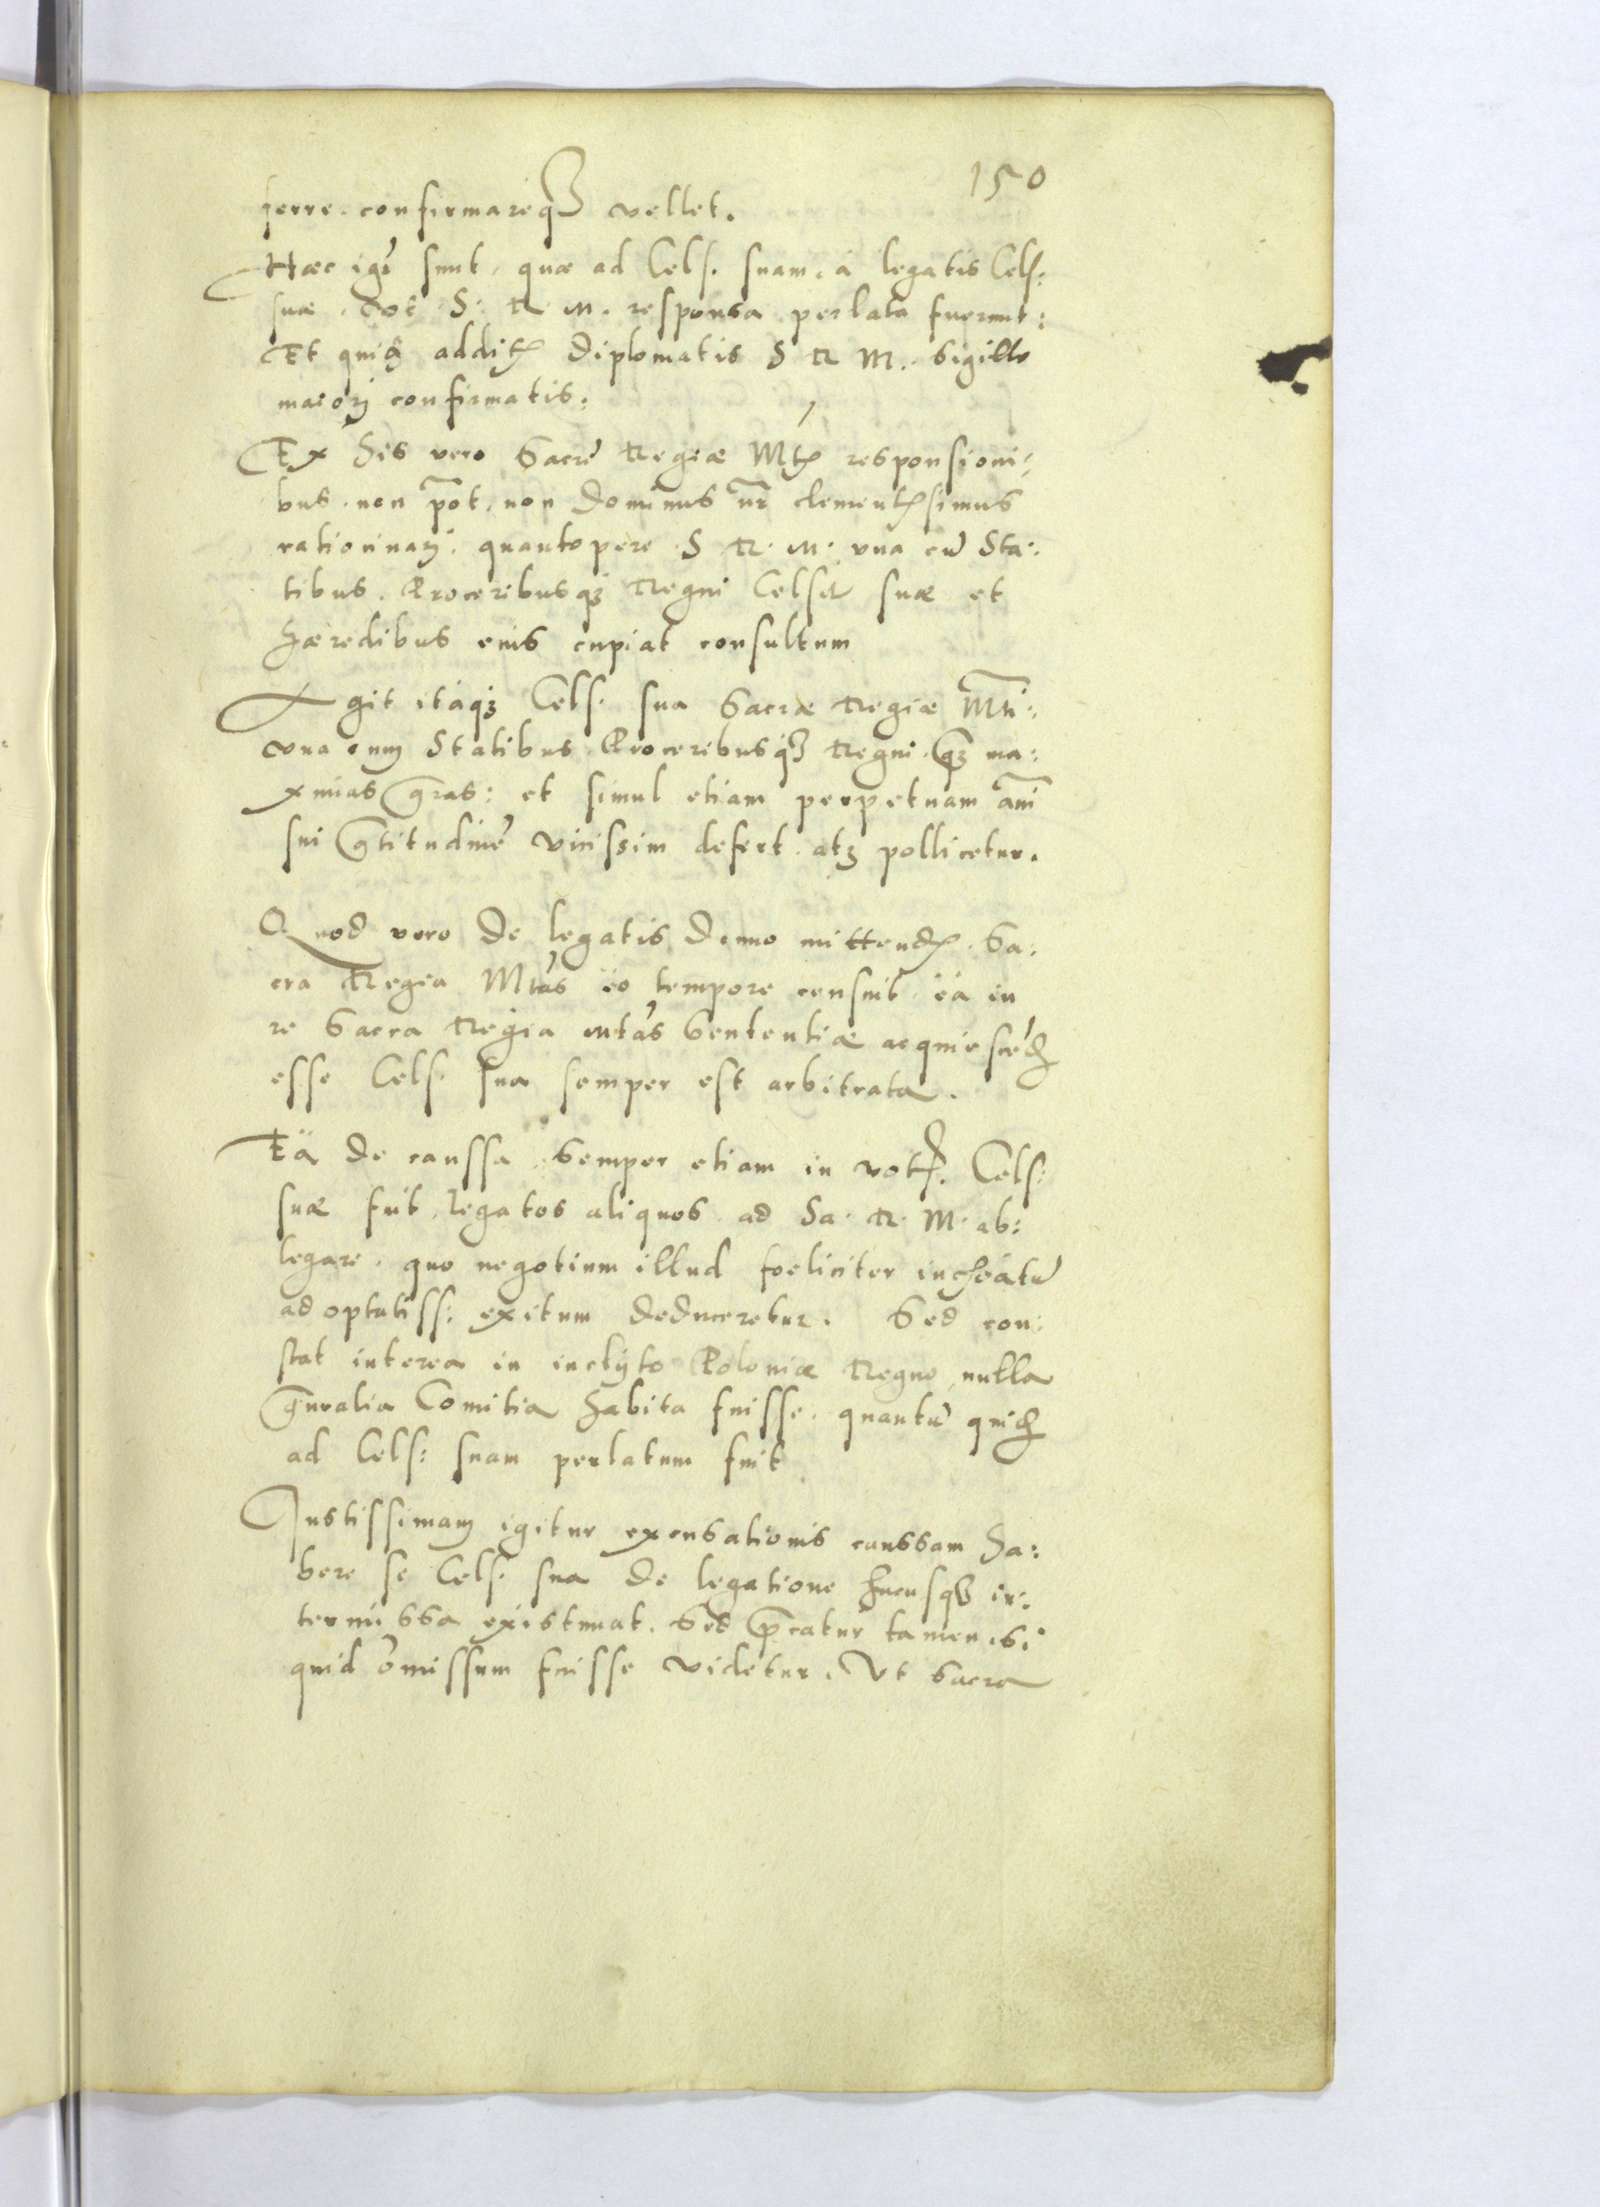 150
ferre confirmareq3 vellet.
Hæc igr̃ sunt, quæ ad Cels. suam, à legatis Cels:
suæ, tot S: R. M. responsa perlata fuerunt:
Et quidẽ additis diplomatis S R M. Sigillo
maiorj confirmatis:
Ex His vero Sacræ Regiæ Mtis responsioni-
bus, non pot̃, non Dominus nr̃ clementissimus
ratiocinarj, quantopere S. R. M. vna cũ Sta:
tibus, Proceribusq3 Regni Celsit suæ et
Hæredibus eius cupiat consultum
Agit itaq3 Cels. sua Sacræ Regiæ Mti:
vna cum Statibus, Proceribusq3 Regni, q3 ma:
ximas gr̃as: et simul etiam perpetuam anĩ
sui gr̃titudinẽ vicissim defert, atq3 pollicetur.
Quod vero de legatis demo mittendis, Sa:
cra Regia Mtas eo tempore censuit, ea in
re Sacra Regia Mtas Sententiæ acquiescẽd
esse Cels. sua semper est arbitrata.
Ea de caussa, Semper etiam in votis. Cels:
suæ fuit, legatos aliquos ad Sa. R. M. ab:
legare, quo negotium illud foeliciter incheatũ
ad optatiss: exitum deduceretur. Sed con:
stat interea in inclÿto Poloniæ Regno, nulla
gñralia Comitia Habita fuisse, quantũ quid
ad Cels: suam perlatum fuit
Iustissimam igitur excusationis caussam Ha:
bere se Cels. sua de legatione hucusq3 in:
termissa existimat. Sed p̃catur tamen, si
quid omissum fuisse videtur. Vt Sacra